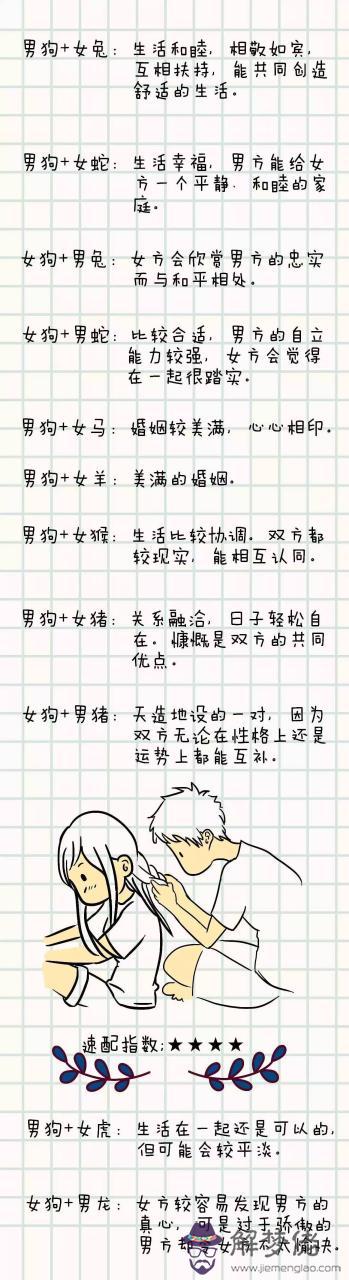 男狗+女兔：生活和睦，相敬如宾，
互相扶持，能共同创造
舒适的生活。
男狗+女蛇：生活幸福，男方能给女
方一个平静、和睦的家
庭。
女狗+男兔：女方会欣赏男方的忠实
而与和平相处。
女狗+男蛇：比较合适，男方的自立
能力较强，女方会觉得
在一起很踏实。
男狗+女马：婚姻较美满，心心相印。
男狗+女羊：美满的婚姻。
男狗+女猴：生活比较协调。双方都
较现实，能相互认同。
男狗+女猪：关系融洽，日子轻松自
在。慷慨是双方的共同
优点。
女狗+男猪：天造地设的一对，因为
双方无论在性格上还是
运势上都能互补。
速配指数：★★★★
男狗+女虎：生活在一起还是可以的，
但可能会较平淡。
女狗+男龙：女方较容易发现男方的
真心，可是过于骄傲的
男方却令女方不大愉快。
解梦佬
www.jiemenglao.com